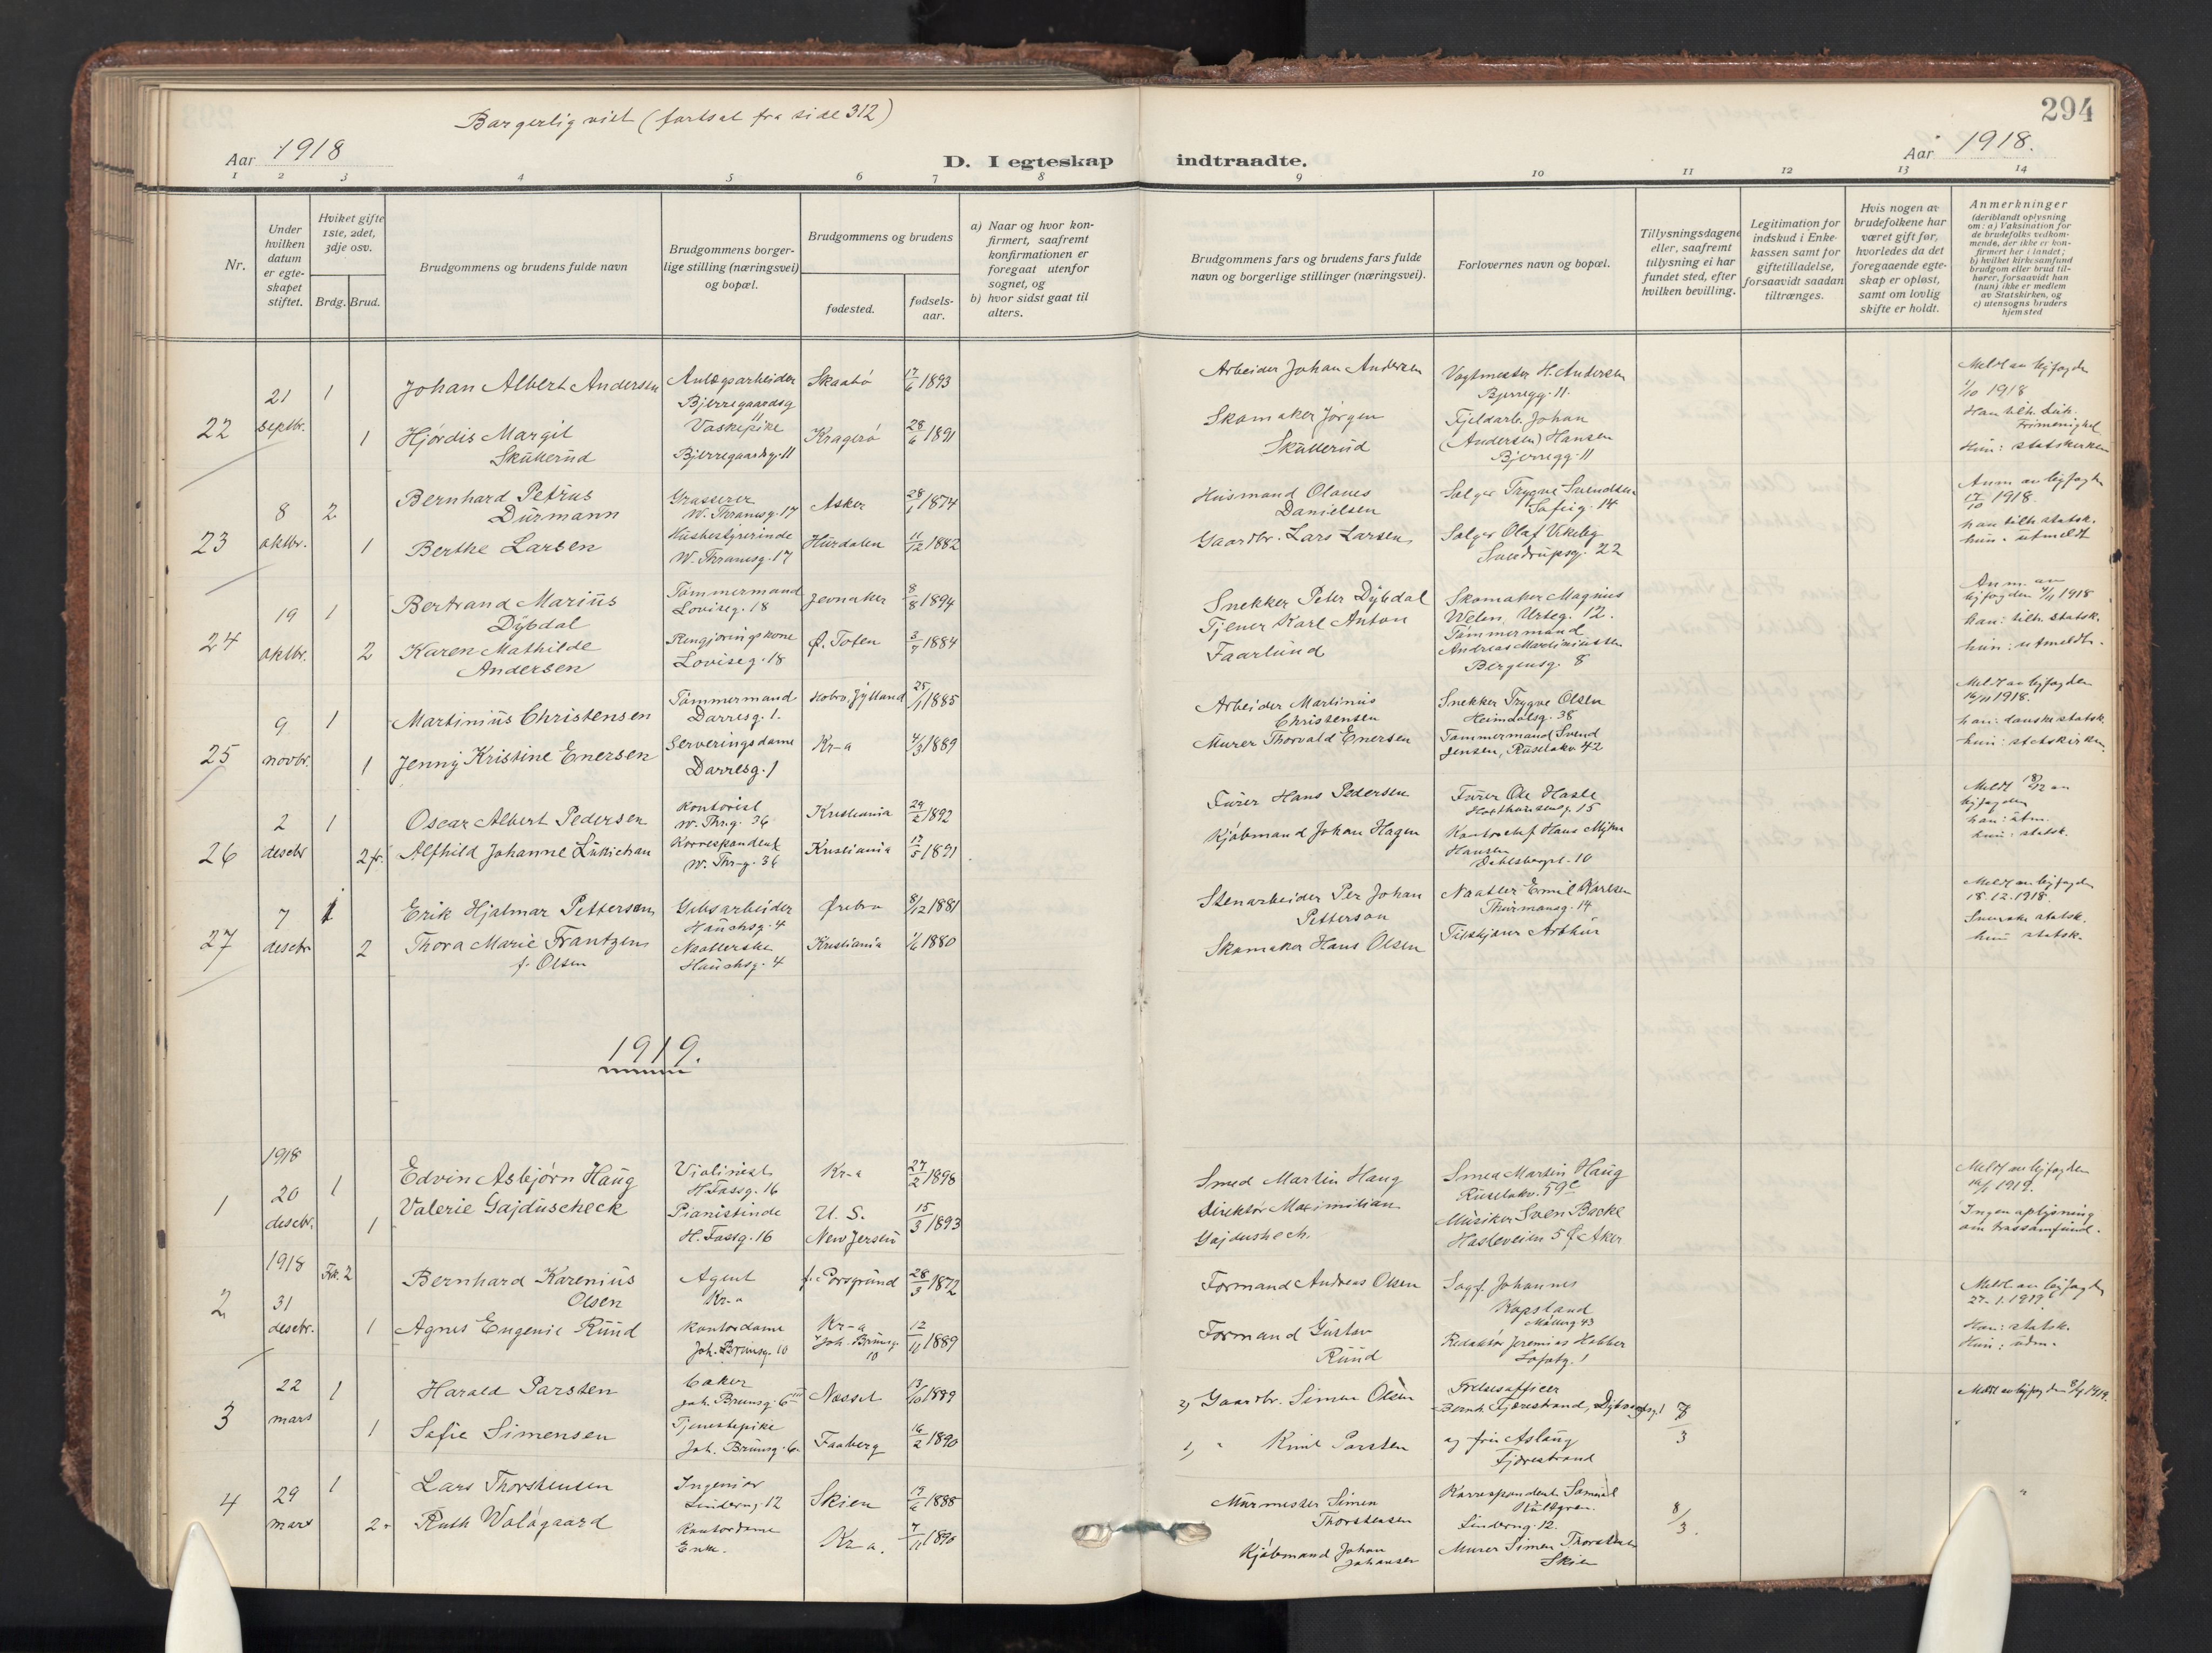 Borgerlig viet (fortsat fra side 312)
294
Aar 1918
D. I egteskap indtraadte.
Aar 1918.
1 2 3 4 5 6 7 8 9 10 11 12 13 14
Nr.
Under hvilken datum er egteskapet stiftet.
Hvilket gifte 1ste, 2det, 3dje osv.
Brdg. Brud.
Brudgommens og brudens fulde navn
Brudgommens borgerlige stilling (næringsvei) og bopæl.
Brudgommens og brudens
fødested.
fødselsaar.
a) Naar og hvor konfirmert, saafremt konfirmationen er foregaat utenfor sognet, og
b) hvor sidst gaat til alters.
Brudgommens fars og brudens fars fulde navn og borgerlige stillinger (næringsvei).
Forlovernes navn og bopæl.
Tillysningsdagene eller, saafremt tillysning ei har fundet sted, efter hvilken bevilling.
Legitimation for indskud i Enkekassen samt for giftetilladelse, forsaavidt saadan tiltrænges.
Hvis nogen av brudefolkene har været gift før, hvorledes da det foregaaende egteskap er opløst, samt om lovlig skifte er holdt.
Anmerkninger (deriblandt oplysning om: a) Vaksination for de brudefolks vedkommende, der ikke er konfirmert her i landet; b) hvilket kirkesamfund brudgom eller brud tilhører, forsaavidt han (hun) ikke er medlem av Statskirken, og c) utensogns bruders hjemsted
22
21 septbr.
1
Johan Albert Andersen
Anlægsarbeider
Bjerregaardsg 11
Skaatø
17/6 1893
Arbeider Johan Andersen
Vogtmester H. Andersen
Bjerregg. 11.
Meldt av byfogden
1/10 1918
1
Hjørdis Margit
Skullerud
Vaskepike
Bjerregaardsg. 11
Kragerø
28/6 1891
Skomaker Jørgen
Skullerud
Fjeldarb. Johan
(Andersen) Hansen
Bjerregg. 11
Hun: statskirken
23
8 oktbr.
2
Bernhard Petrus
Durmann
W. Thranesg. 17
Asker
28/1 1874
Husmand Olaves
Danielsen
Sælger Trygve Svendsen
Sofieg. 14
Anm. av byfogden
17/10 1918.
han tilh. statsk.
hun: utmeldt
1
Berthe Larsen
Husbestyrerinde
W. Thranesg. 17
Hurdalen
11/12 1882
Gaardbr. Lars Larsen
Sælger Olaf Vikeby
Sverdrupsg. 22
24
19 oktbr.
1
Bertrand Marius
Dybdal
Tømmermand
Loviseg. 18
Jevnaker
8/8 1894
Snekker Peter Dybdal
Skomaker Magnus
Welen, Urteg. 12.
Anm. av
byfogden 7/11 1918
han: tilh. statsk.
hun: utmeldt.
2
Karen Mathilde
Andersen
Rengjøringskone
Loviseg. 18
Ø. Toten
3/7 1884
Tjener Karl Anton
Faarlund
Tømmermand
Andreas Martiniussen
Bergensg. 8
25
9 novbr.
1
Martinius Christensen
Tømmermand
Darresg. 1.
Hobro, Jylland
25/1 1885
Arbeider Martinus
Christensen
Snekker Trygve Olsen
Heimdalsg. 38
Meldt av byfogden
16/11 1918.
han: danske statsk.
hun: statskirken.
1
Jenny Kristine Enersen
Serveringsdame
Darresg. 1
Kr-a
4/3 1889
Murer Thorvald Enersen
Tømmermand Svend
Jensen, Ruseløkv. 42
26
2 desebr
1
Oscar Albert Pedersen
Kontorist
W. Thr.g. 36
Kristiania
29/2 1892
Furer Hans Pedersen
Furer Ole Hasle
15
Meldt 18/12 av
byfogden
han: utm.
hun: statsk.
2 fr.
Alfhild Johanne
Korrespondent
W. Thr-g. 36
Kristiania
17/5 1891
Kjøbmand Johan Hagen
Kontorchef Hans
Hansen
10
27
7 desebr.
1
Erik Hjalmar Petterson
Gibsarbeider
Hauchsg. 4
Ørebro
8/12 1881
Stenarbeider Per Johan
Petterson
Naatler Emil Karlsen
Thurmansg. 14
Meldt av byfogden
18.12.1918.
Svenske statsk.
hun statsk.
2
Thora Marie Frantzen
f. Olsen
Naatlerske
Hauchsg. 4
Kristiania
1/6 1880
Skomaker Hans Olsen
Tilskjærer Arthur
1919.
1
1918
20 desebr.
1
Edvin Asbjørn Haug
Violinist
H. Fossg. 16
Kr-a
27/2 1898
Smed Martin Haug
Smed Martin Haug
Ruseløkv. 59c
Meldt av byfogden
1919.
Ingen oplysning
om trossamfund.
1
Valerie Gajduscheck
Pianistinde
H. Fossg. 16
U. S.
New Jersey
15/3 1893
Direktør Maximilian
Gajduscheck
Musiker Sven Backe
Hasleveien 5 Ø. Aker
2
1918
31 desebr.
Frk. 2
Bernhard Karenius
Olsen
Agent
Kr-a
f. Porsgrund
28/3 1872
Formand Andreas Olsen
Sagf. Johannes
Kopsland
Møllerg. 43
Meldt av byfogden
27.1.1919
Han: statsk.
Hun: udm.
1
Agnes Eugenie Ruud
Kontordame
Joh. Brunsg. 10
Kr-a
Joh. Brunsg. 10
12/11 1889
Formand Gustav
Ruud
Redaktør Jeremias
Sofatg. 1
3
22 mars
1
Harald Parsten
baker
Joh. Brunsg. 6 III
Nesset
13/10 1889
2) Gaardbr. Simen Olsen
Frelsesofficer
Bernh. Fjærestrand,
7/3
Meldt av byfogden 8/4 1919.
1
Sofie Simensen
Tjenestepike
Joh. Brunsg. 6
Faaberg
16/2 1890
1) " Knut Parsten
og fru Aslaug
Fjærestrand
4
29 mars
1
Lars Thorstensen
Ingeniør
Linderng. 12
Skien
19/6 1888
Murmester Simen
Thorstensen
Korrespondent Samuel
Hultgren.
Linderng. 12.
8/3.
"
2
Ruth
Kontordame
Enke.
Kr-a.
7/11 1890
Kjøbmand Johan
Johansen
Murer Simen Thorstensen
Skien